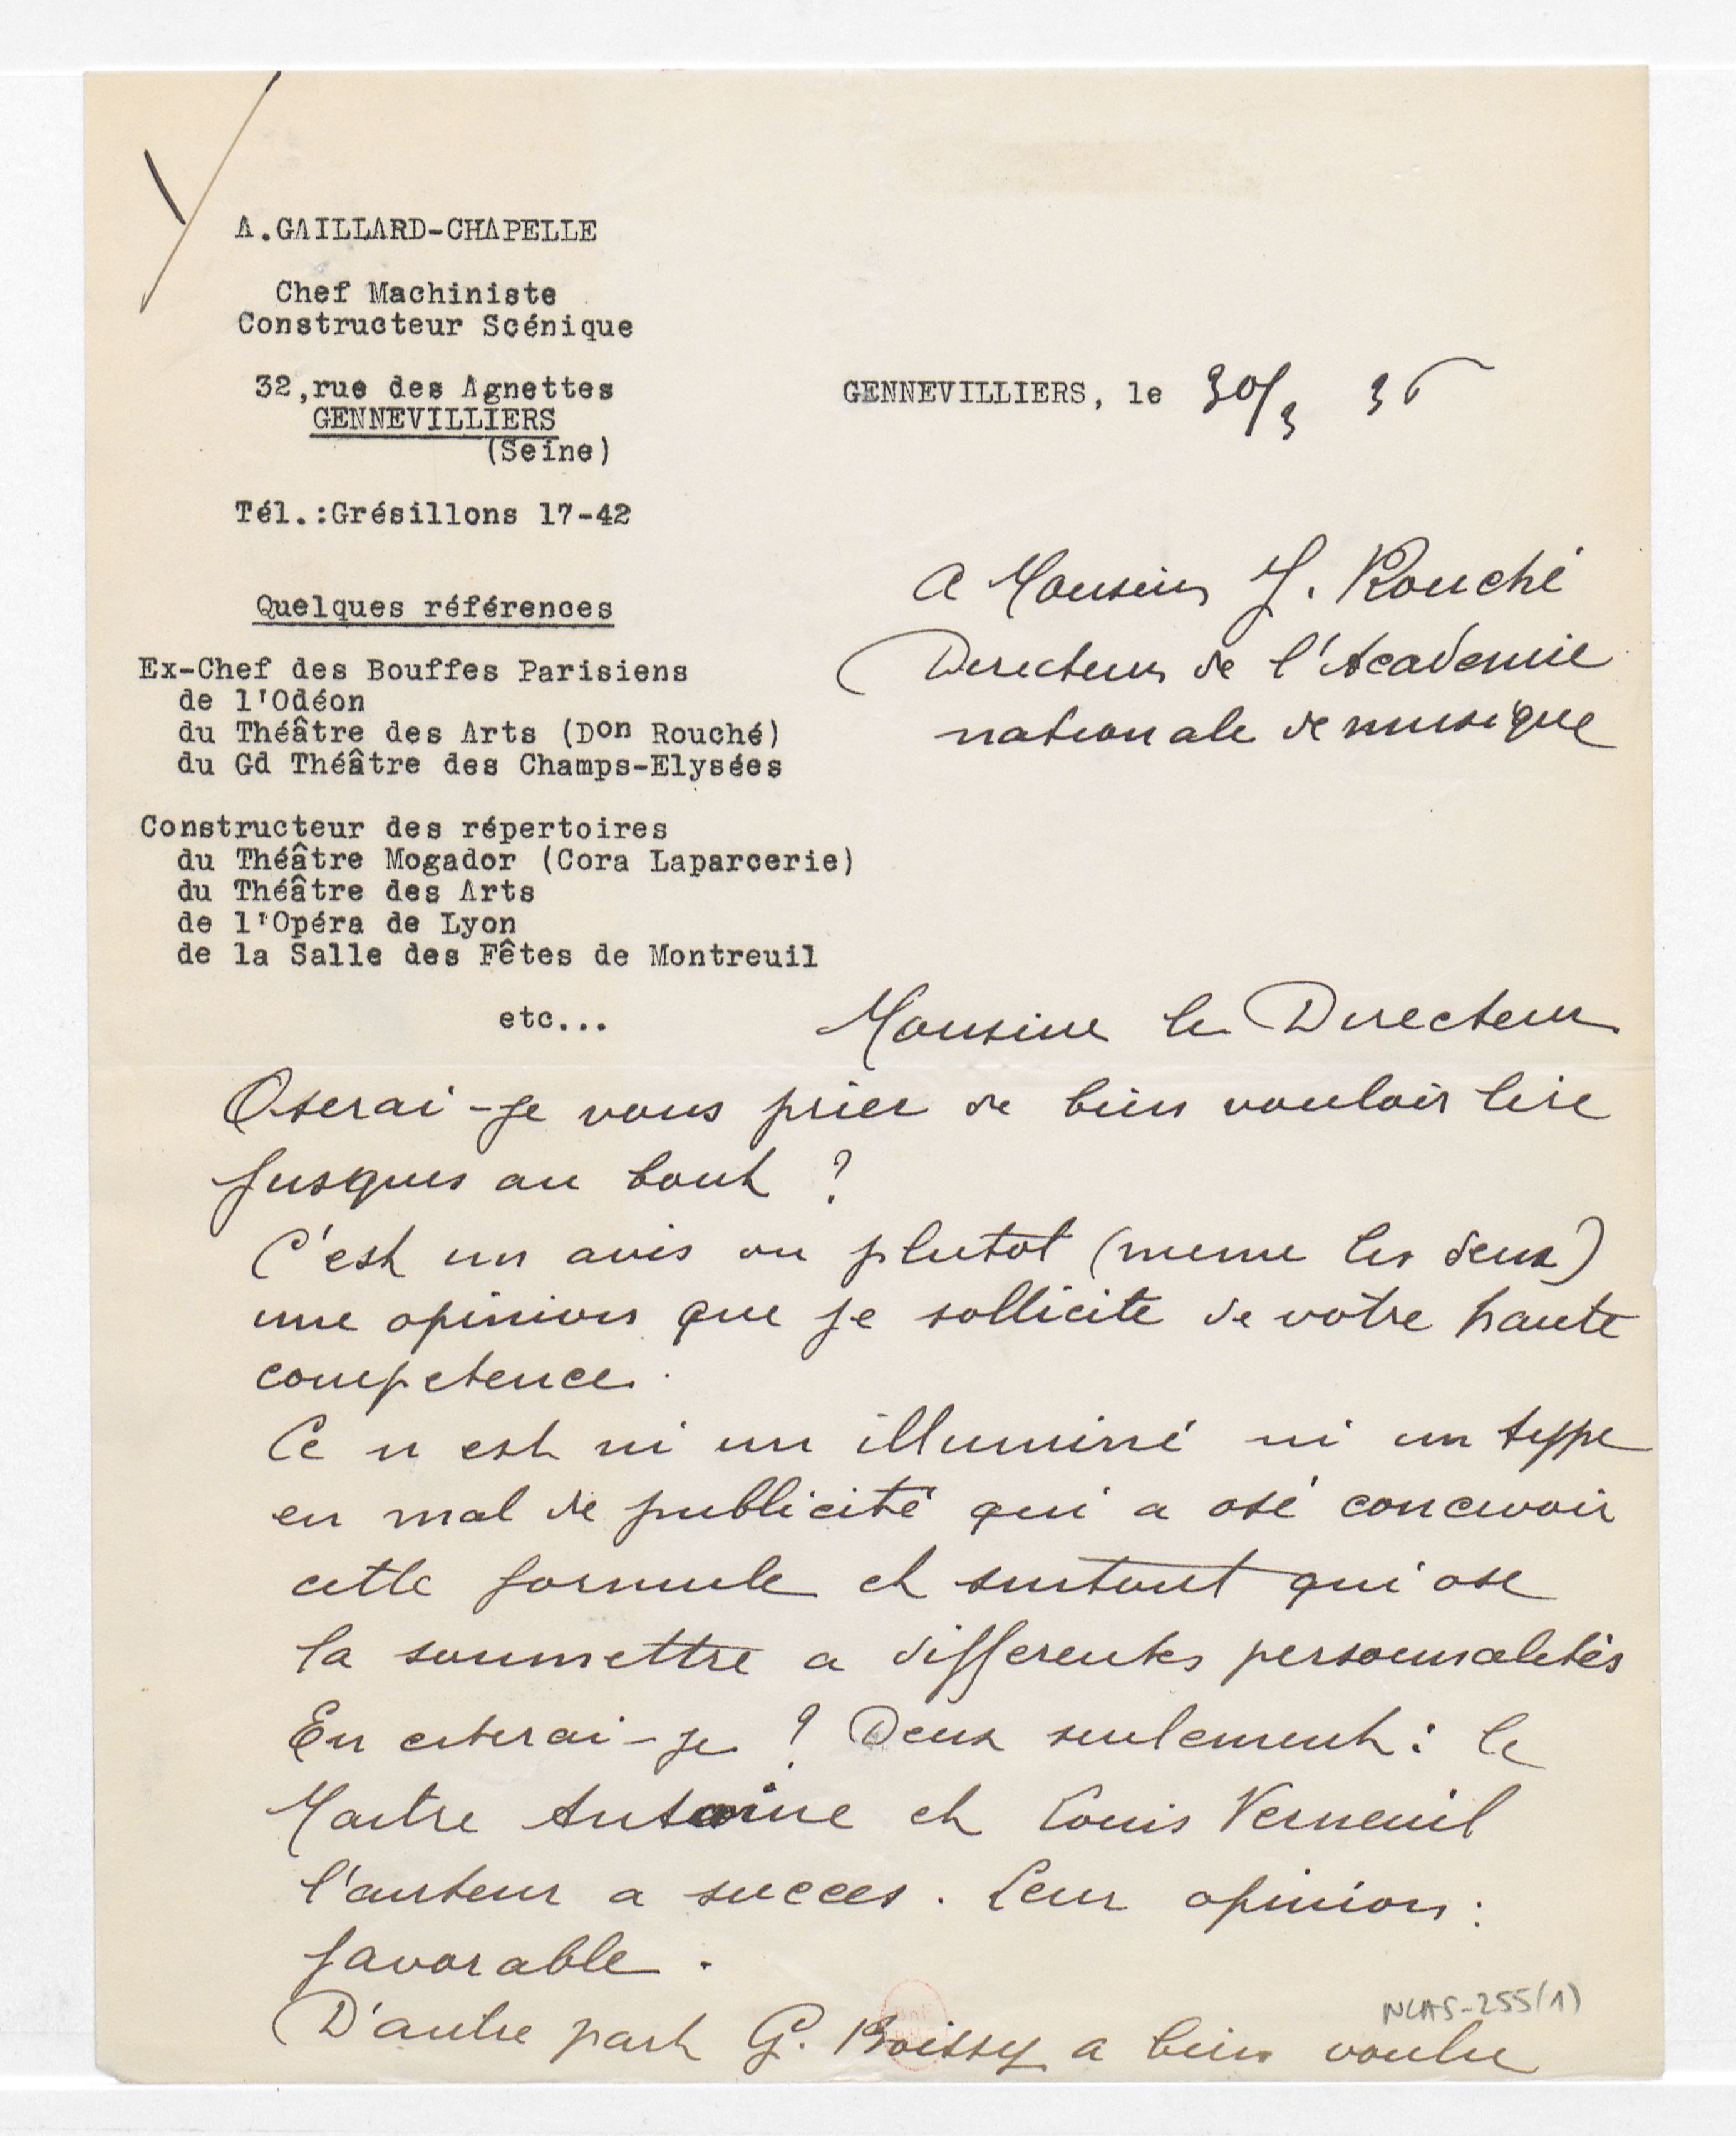 A.GAILLARD-CHAPELLE
Chef Machiniste
Constructeur Scénique
32,rue des Agnettes
GENNEVILLIERS
(Seine)
Tél.:Grésillons 17-42
Quelques références
Ex-Chef des Bouffes Parisiens
de l'Odéon
du Théâtre des Arts (Don Rouché)
du Gd Théâtre des Champs-Elysées
Constructeur des répertoires
du Théâtre Mogador (Cora Laparcerie)
du Théâtre des Arts
de l'Opéra de Lyon
de la Salle des Fêtes de Montreuil
etc...
GENNEVILLIERS, le 30/3 36
A Monsieur J. Rouché
Directeur de l'Academie
nationale de musique
Monsieur le Directeur
Oserai-je vous prier de bien vouloir lire
jusques au bout ?
C'est un avis ou plutot (meme les deux)
une opinion que je sollicite de votre haute
competence.
Ce n est ni un illuminé ni un type
en mal de publicité qui a osé concevoir
cette formule et surtout qui ose
la soumettre a differentes personnalités
En citerai-je ? Deux seulement : le
Maitre Antoine et Louis Verneuil
l'auteur a succes. Leur opinion :
favorable.
D'autre part G. Boissy a bien voulu
NLAS-255(1)